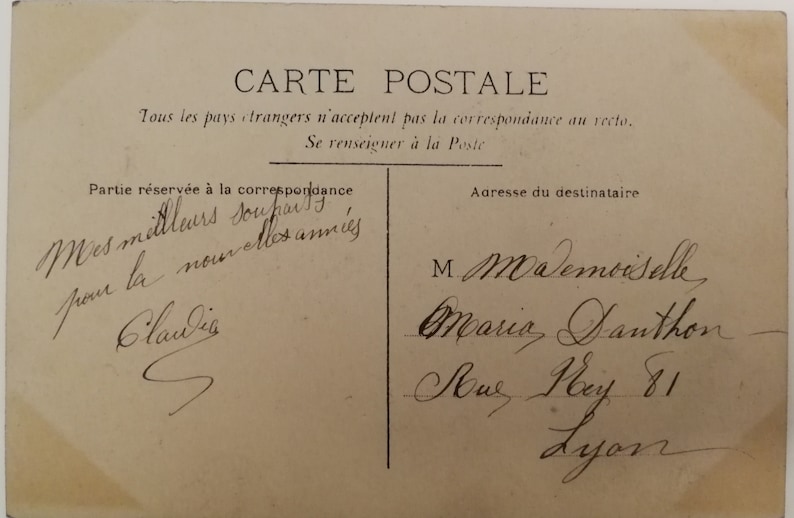 CARTE POSTALE
Tous les pays étrangers n'acceptent pas la correspondance au recto.
Se renseigner à la Poste
Partie réservée à la correspondance
Mes meilleurs souhaits
pour la nouvelles années
Claudia
Adresse du destinataire
M Mademoiselle
Maria Danthon
Rue Ney 81
Lyon